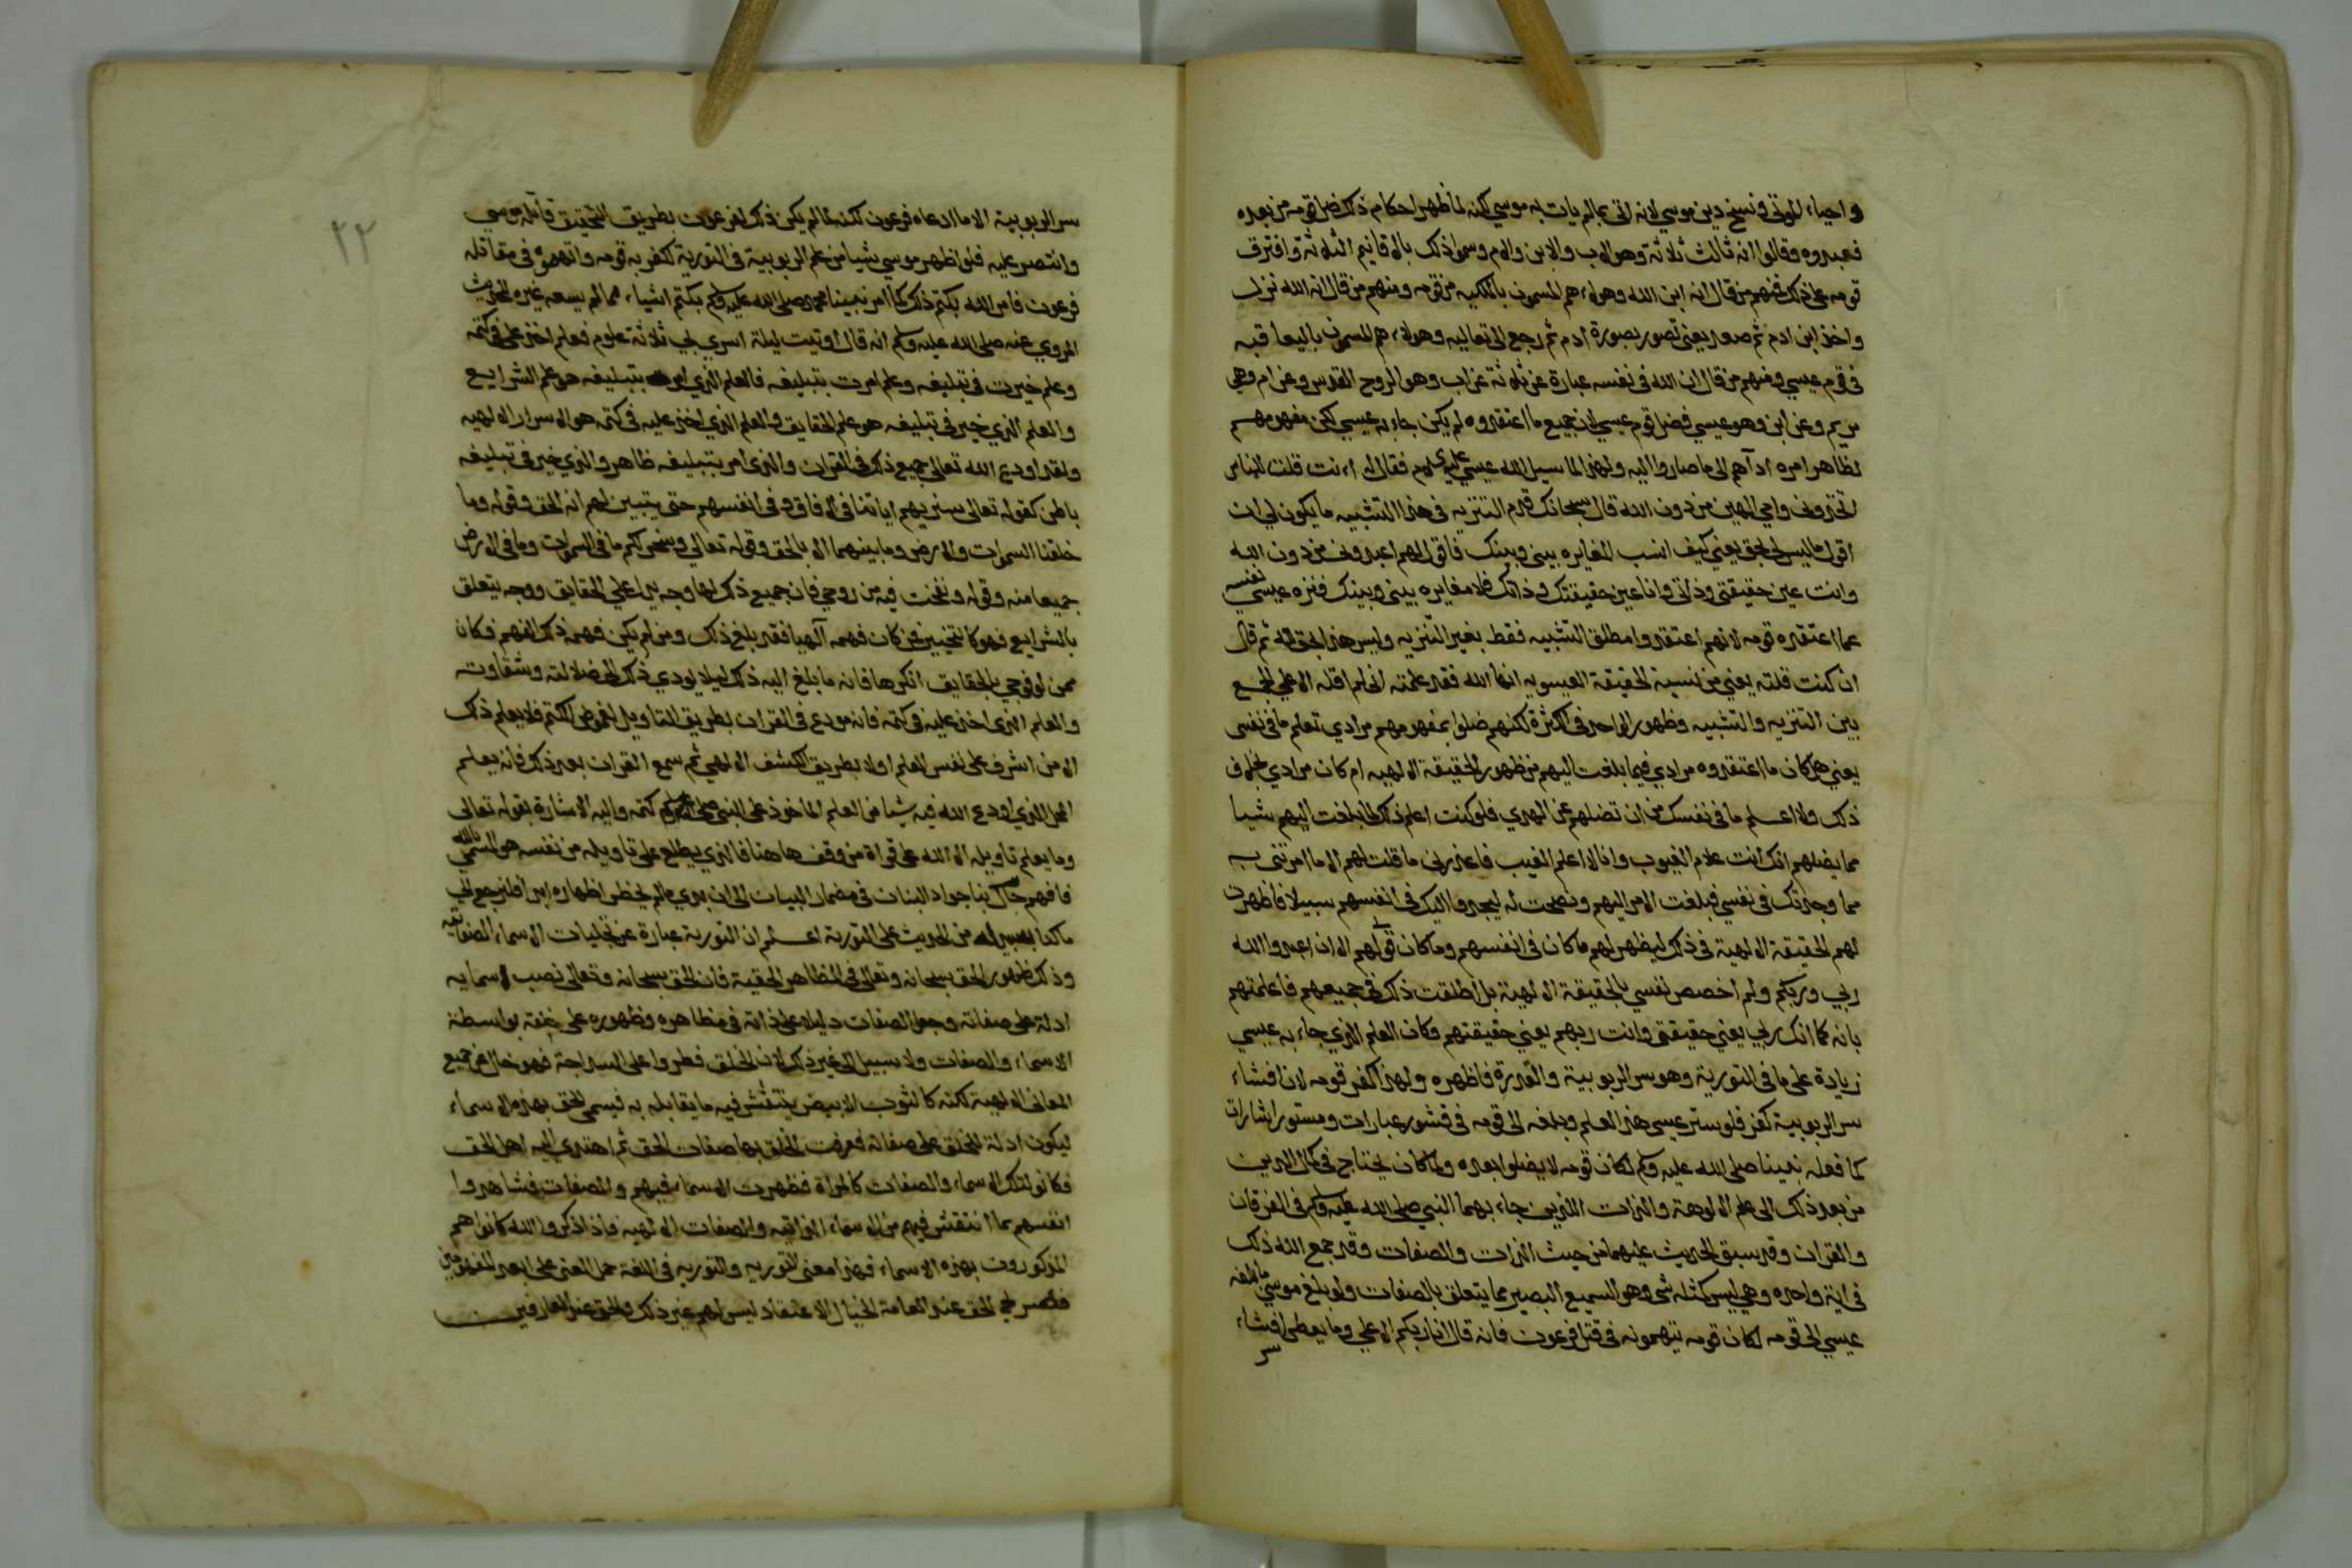 واحياء الموتى ونسخ دين موسى لانه اتى بما لم يات به موسى لكنه لما ظهر احكام ذلك ضل قومه من بعده
فعبدوه وقالوا انه ثالث ثلاثة وهو الاب والابن والام وسموا ذلك بالاقانيم الثلاثة وافترق
قومه على ذلك فمنهم من قال انه ابن الله وهولاء هم المسمون بالملكيه من قومه ومنهم من قال انه الله نزل
واخذ ابن ادم ثم صعد يعنى تصور بصورة ادم ثم رجع الى تعاليه وهولاء هم المسمون باليعاقبه
فى قوم عيسى ومنهم من قال ان الله فى نفسه عبارة عن ثلاثة عن اب وهو الروح القدس وعن ام وهي
مريم وعن ابن وهو عيسي فضل قوم عيسي لان جميع ما اعتقدوه لم يكن جاء به عيسي لكن مفهومهم
لظاهر امره ادآهم الى ما صاروا اليه ولهذا لما سيل الله عيسي عليه السلام فقال له اءنت قلت للناس
اتخذوني وامي الهين من دون الله قال سبحانك قدم التنزيه فى هذا التشبيه ما يكون لي ان
اقول ما ليس لى بحق يعني كيف انسب المغايره بينى وبينك فاقول لهم اعبدوني من دون الله
وانت عين حقيقتى وذاتي وانا عين حقيقتك وذاتك فلا مغايره بينى وبينك فنزه عيسي نفسه
عما اعتقده قومه لانهم اعتقدوا مطلق التشبيه فقط بغير التنزيه وليس هذا بحق لله ثم قال
ان كنت قلته يعني من نسبة الحقيقة العيسويه انها الله فقد علمته اني لم اقله الا علي الجمع
بين التنزيه والتشبيه وظهور الواحد فى الكثرة لكنهم ضلوا بمفهومهم مرادي تعلم ما فى نفسى
يعني هل كان ما اعتقدوه مرادي فيما بلغت اليهم من ظهور الحقيقة الالهيه ام كان مرادي بخلاف
ذلك ولا اعلم ما فى نفسك من ان تضلهم عن الهدي فلو كنت اعلم ذلك لما بلغت اليهم شيا
مما يضلهم انك انت علام الغيوب وانا لا اعلم الغيب فاعذرنى ما قلت لهم الا ما امرتنى به
مما وجدتك فى نفسي فبلغت الامر اليهم ونصحت له ليجدوا اليك فى انفسهم سبيلا فاظهرت
لهم الحقيقة الالهية فى ذلك ليظهر لهم ما كان فى انفسهم وما كان قولي لهم الا ان اعبدوا الله
ربي وربكم ولم اخصص نفسي بالحقيقة الالهية بل اطلقت ذلك فى جميعهم فاعلمتهم
بانه كما انك ربي يعني حقيقتى وانت ربهم يعني حقيقتهم وكان العلم الذي جاء به عيسي
زيادة على ما فى التورية وهو سر الربوبية والقدرة فاظهره ولهذا كفر قومه لان افشاء
سر الربوبية كفر فلو ستر عيسى هذا العلم وبلغه الى قومه فى قشور عبارات ومستور اشارات
كما فعله نبينا صلى الله عليه وسلم لكان قومه لا يضلوا بعده ولما كان يحتاج فى كمال الدين
من بعد ذلك الى علم الالوهة والذات اللذين جاء بهما النبي صلى الله عليه وسلم فى الفرقان
والقران وقد سبق الحديث عليهما من حيث الذات والصفات وقد جمع الله ذلك
فى اية واحده وهي ليس كمثله شى وهو السميع البصير مما يتعلق بالصفات ولو بلغ موسي ما بلغه
عيسي الى قومه لكان قومه يتهمونه فى قتل فرعون فانه قال انا ربكم الاعلي وما يعطى افشاء
سر
٢٢
سر الربوبية الا ما ادعاه فرعون لكنه لما لم يكن ذلك لفرعون بطريق التحقيق قاتله موسي
وانتصر عليه فلو اظهر موسي شيا من علم الربوبية فى التورية لكفر به قومه واتهموه فى مقاتلة
فرعون فامر الله بكتم ذلك كما امر نبينا محمد صلى الله عليه وسلم بكتم اشياء مما لم يسعه غيره للحديث
المروي عنه صلى الله عليه وسلم انه قال اوتيت ليلة اسري بي ثلاثة علوم فعلم اخذ على فى كتمه
وعلم خيرت فى تبليغه وعلم امرت بتبليغه فالعلم الذي امر بتبليغه هو علم الشرايع
والعلم الذي خير فى تبليغه هو علم الحقايق والعلم الذي اخذ عليه فى كتمه هو الاسرار الالهيه
ولقد اودع الله تعالى جميع ذلك فى القران والذى امر بتبليغه ظاهر والذي خير فى تبليغه
باطن كقوله تعالى سنريهم اياتنا فى الافاق وفى انفسهم حتى يتبين لهم انه الحق وقوله وما
خلقنا السموات والارض وما بينهما الا بالحق وقوله تعالي وسخر لكم ما فى السموات وما فى الارض
جميعا منه وقوله ونفخت فيه من روحي فان جميع ذلك لها وجه يدل على الحقايق ووجه يتعلق
بالشرايع فهو كالتخيير فمن كان فهمه آلهيا فقد بلغ ذلك ومن لم يكن فهمه ذلك الفهم وكان
ممن لو فوجي بالحقايق انكرها فانه ما بلغ اليه ذلك ليلا يودي ذلك الى ضلالته وشقاوته
والعلم الذى اخذ عليه فى كتمه فانه مودع فى القران بطريق التاويل لغموض الكتم فلا يعلم ذلك
الا من اشرف على نفس العلم اولا بطريق الكشف الالهي ثم سمع القران بعد ذلك فانه يعلم
المحل الذي اودع الله فيه شيا من العلم الماخوذ على النبى صلى الله عليه وسلم كتمه واليه الاشارة بقوله تعالى
وما يعلم تاويله الا الله على قراة من وقف هاهنا فالذي يطلع على تاويله من نفسه هو المسمى بالله
فافهم جال بنا جواد البنان فى مضمار البيان الى ان ابدي ما لم يخطر اظهاره ابدا فلنرجع الي
ما كنا بسبيله من الحديث على التورية اعلم ان التورية عبارة عن تجليات الاسماء الصفاتيه
وذلك ظهور الحق سبحانه وتعالى فى المظاهر الحقية فان الحق سبحانه وتعالى نصب الاسما يه
ادلة على صفاته وجعل الصفات دليلا على ذاته فى مظاهره وظهوره على خلقه بواسطة
الاسماء والصفات ولا سبيل الى غير ذلك لان الخلق فطروا على السذاجة فهو خال عن جميع
المعانى الالهية لكنه كالثوب الابيض ينتقش فيه ما يقابله به فيسمى الحق بهذه الاسماء
ليكون ادلة للخلق على صفاته فعرفت الخلق بها صفات الحق ثم اهتدي اليه اهل الحق
فكانوا لتلك الاسماء والصفات كالمراة فظهرت الاسماء فيهم والصفات فشاهدوا
انفسهم بما انتقش فيهم من الاسماء الذاتيه والصفات الالهيه فاذا ذكروا الله كانوا هم
المذكورون بهذه الاسماء فهذا معنى التوريه والتوريه فى اللغة حمل المعنى على ابعد المفهومين
فتصريح الحق عند العامة الخيال الاعتقاد ليس لهم غير ذلك والحق عند العارفين